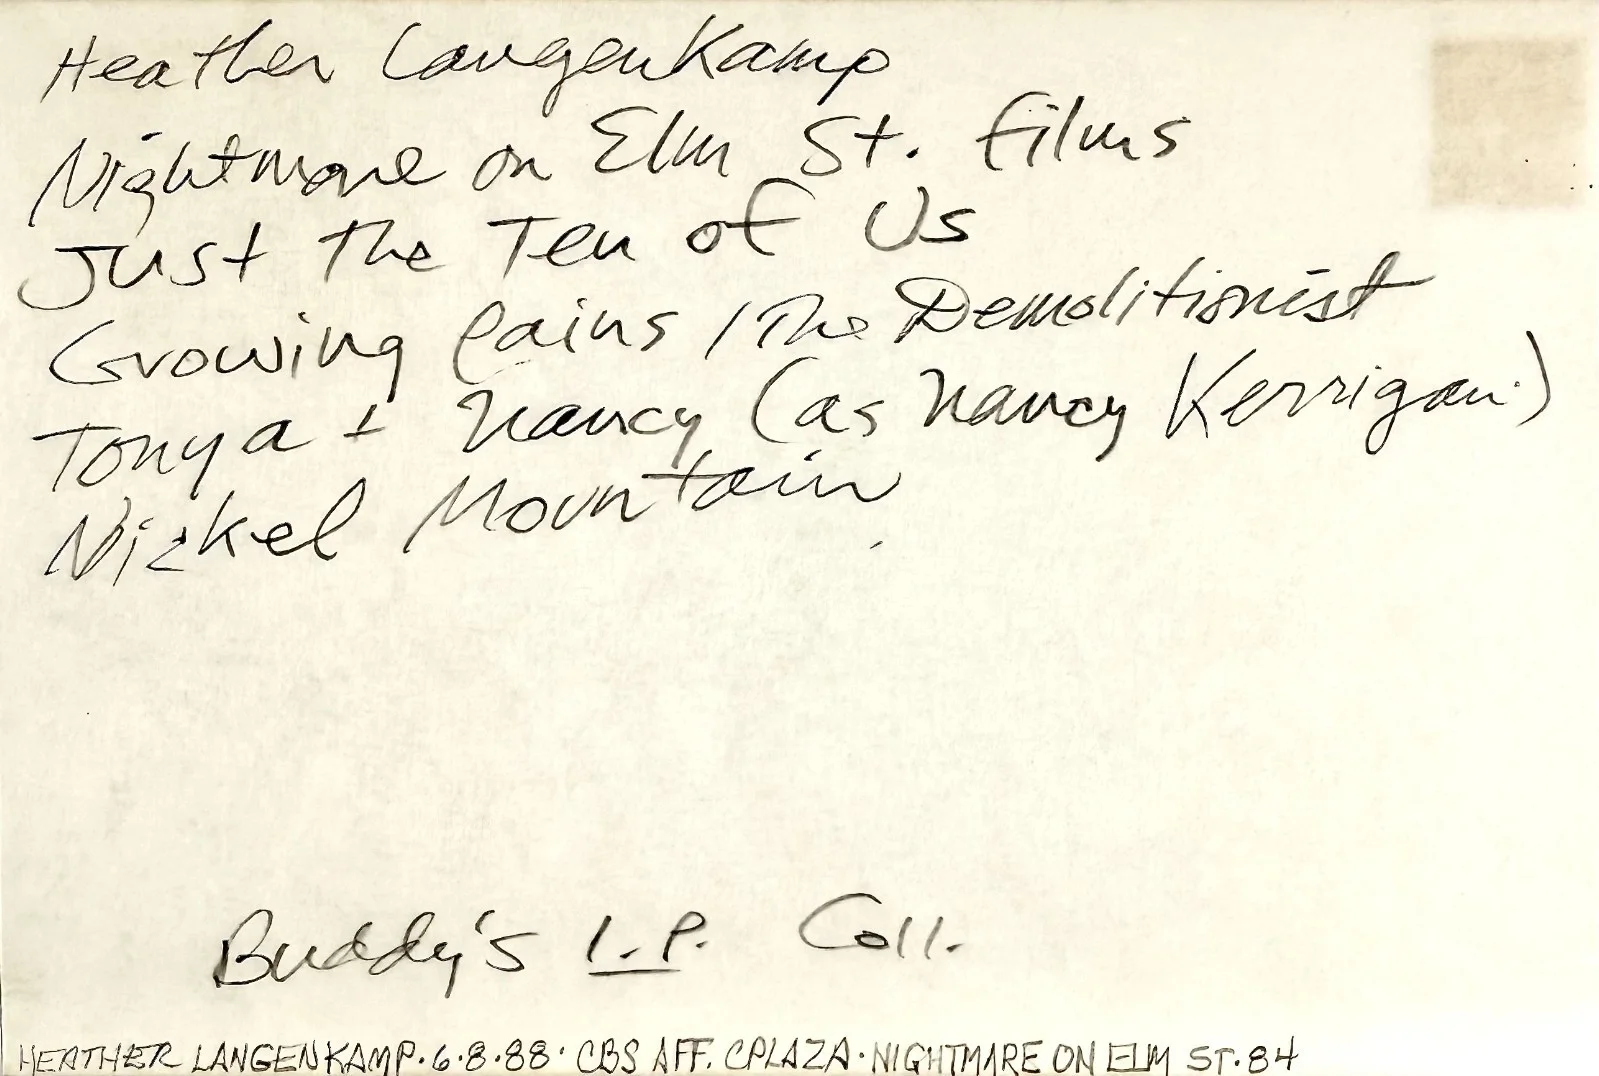 Heather Langenkamp
Nightmare on Elm St. films
Just The Ten of Us
Growing Pains / The Demolitionist
Tonya + Nancy (as Nancy Kerrigan)
Nickel Mountain
Buddy's I.P. Coll.
HEATHER LANGENKAMP·6·8·88· CBS AFF. CPLAZA·NIGHTMARE ON ELM ST·84